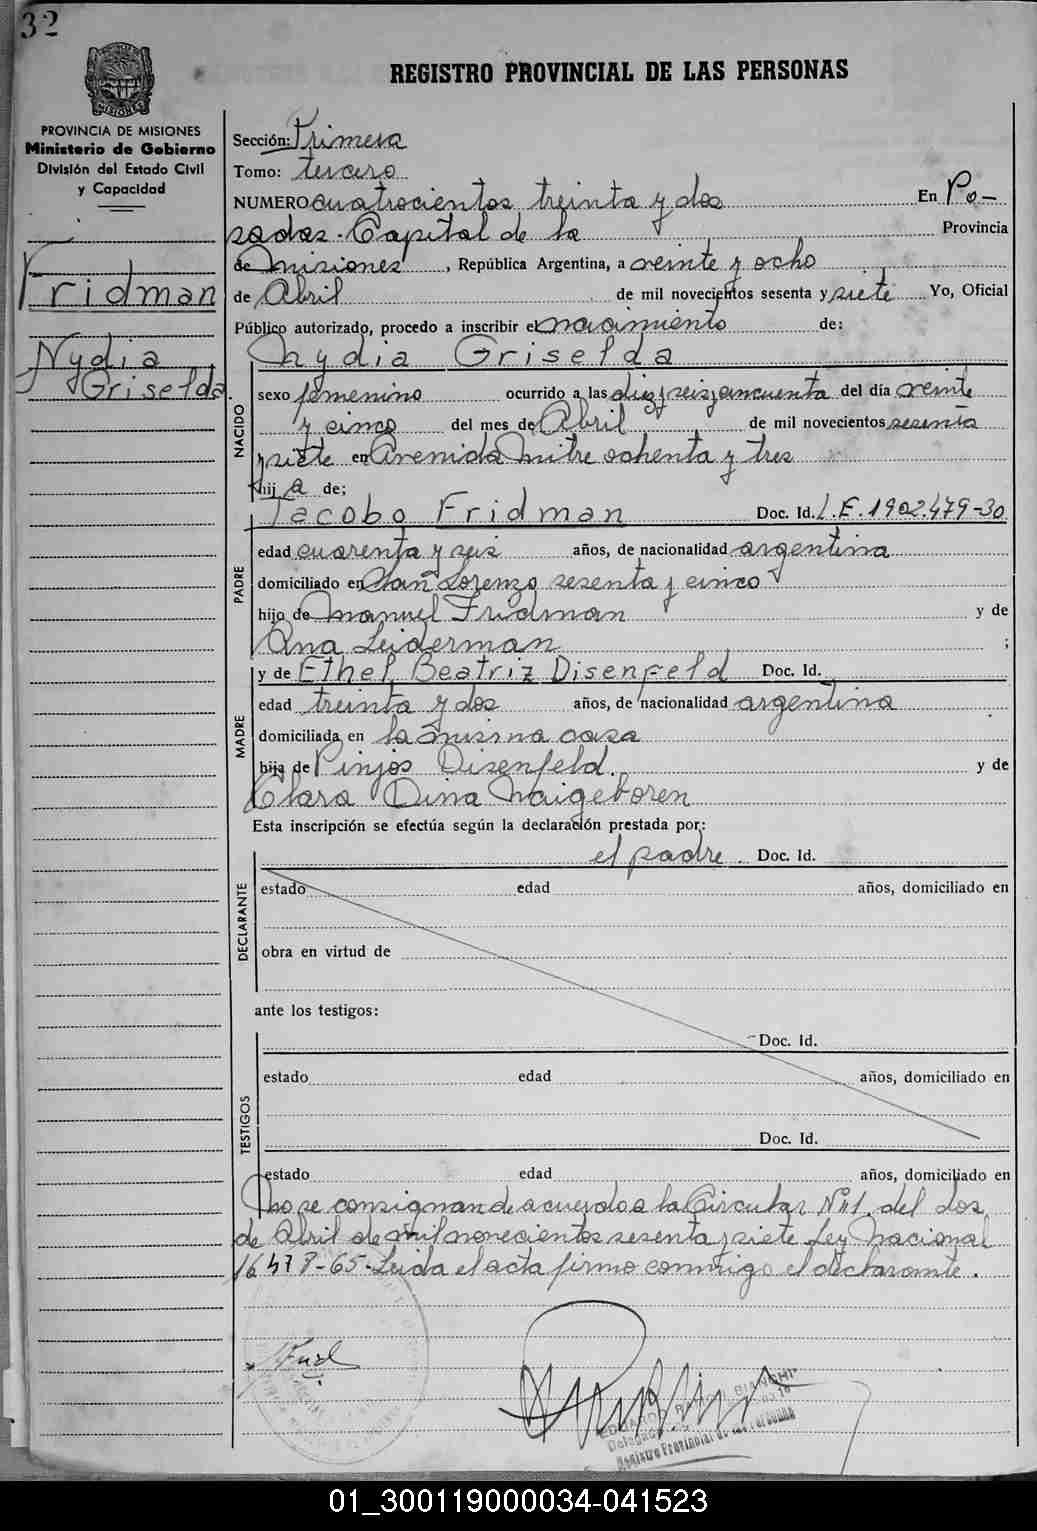 32
REGISTRO PROVINCIAL DE LAS PERSONAS
PROVINCIA DE MISIONES
Ministerio de Gobierno
División del Estado Civil
y Capacidad
Fridman
Nydia
Griselda
Sección: Primera
Tomo: tercero
NUMERO cuatrocientos treinta y dos En Po-
sadas. Capital de la Provincia
de Misiones, República Argentina, a veinte y ocho
de Abril de mil novecientos sesenta y siete Yo, Oficial
Público autorizado, procedo a inscribir el nacimiento de:
Nydia Griselda
NACIDO
sexo femenino ocurrido a las diez y seis y cincuenta del día veinte
y cinco del mes de Abril de mil novecientos sesenta
y siete en Avenida Mitre ochenta y tres
hija de;
Jacobo Fridman Doc. Id. L.E. 1902.479-30
PADRE
edad cuarenta y seis años, de nacionalidad argentina
domiciliado en San Lorenzo sesenta y cinco
hijo de Manuel Fridman y de
Ana Leiderman ;
y de Ethel Beatriz Disenfeld Doc. Id.
MADRE
edad treinta y dos años, de nacionalidad argentina
domiciliada en la misma casa
hija de Pinjos Disenfeld. y de
Clara Dina Naigeboren
Esta inscripción se efectúa según la declaración prestada por:
el padre. Doc. Id.
DECLARANTE
estado edad años, domiciliado en
obra en virtud de
ante los testigos:
Doc. Id.
TESTIGOS
estado edad años, domiciliado en
Doc. Id.
estado edad años, domiciliado en
No se consignan de acuerdo a la Circular Nº 1. del dos
de Abril de mil novecientos sesenta y siete Ley Nacional
16478-65. Leida el acta firmo conmigo el declarante.
BIANCHI
Registro Provincial de las Personas
01_300119000034-041523